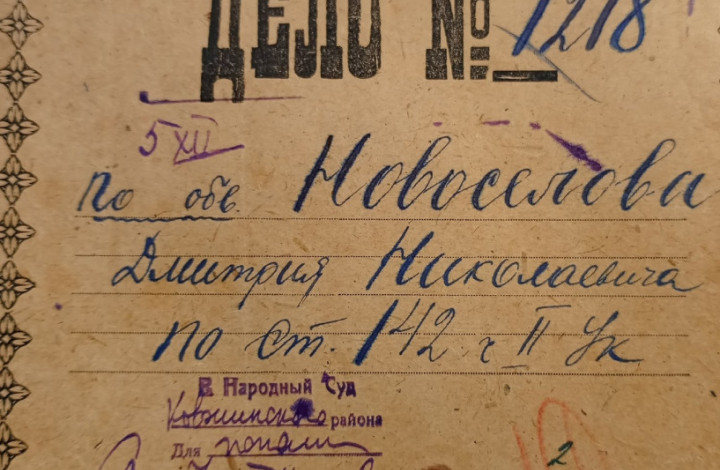 ДЕЛО № 1218
5 XII
По обв. Новоселова
Дмитрия Николаевича
по ст. 142 ч II Ук
В Народный Суд
района
Для
2